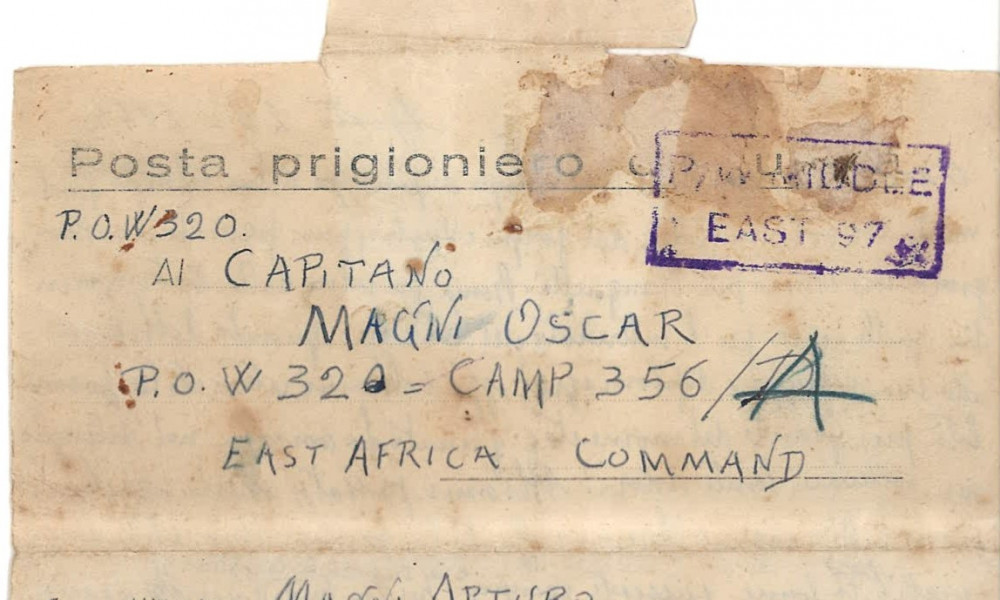 Posta prigioniero
P/W MIDDLE
EAST 97
P.O.W 320.
Al CAPITANO
MAGNI OSCAR
P.O.W 320 = CAMP 356 / A
EAST AFRICA COMMAND
MAGNI ARTURO